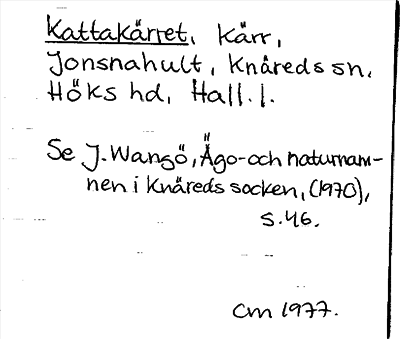 Kattakärret, kärr,
Jonsnahult, Knäreds sn.
Höks hd, Hall. l.
Se J. Wangö, Ägo- och naturnam-
nen i Knäreds socken, (1970),
s. 46.
CM 1977.